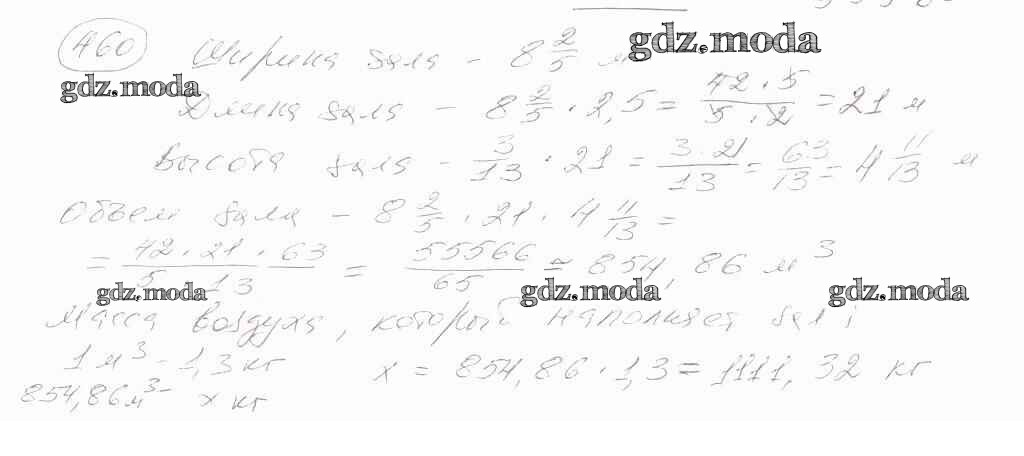 460 Ширина зала - 8 2/5 м
gdz.moda
gdz.moda
Длина зала - 8 2/5 · 2,5 = 42 · 5 / 5 · 2 = 21 м
Высота зала - 3/13 · 21 = 3 · 21 / 13 = 63/13 = 4 11/13 м
Объем зала - 8 2/5 · 21 · 4 11/13 =
= 42 · 21 · 63 / 5 · 13 = 55566/65 ≈ 854,86 м³
gdz.moda
gdz.moda
gdz.moda
Масса воздуха, который наполняет зал:
1 м³ - 1,3 кг
х = 854,86 · 1,3 = 1111,32 кг
854,86 м³ - х кг